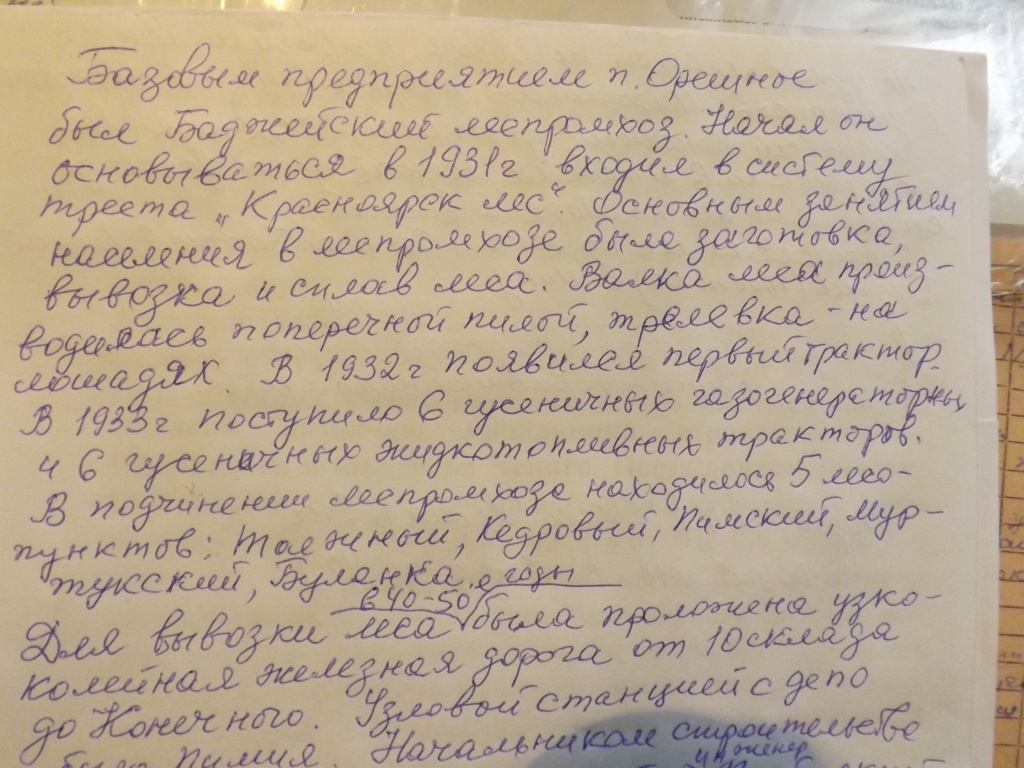 Базовым предприятием п. Орешное
был Баджейский леспромхоз. Начал он
основываться в 1931г входил в систему
треста „Красноярск лес“. Основным занятием
населения в леспромхозе была заготовка,
вывозка и сплав леса. Валка леса произ-
водилась поперечной пилой, трелевка - на
лошадях. В 1932г появился первый трактор.
В 1933г поступило 6 гусеничных газогенераторных
и 6 гусеничных жидкотопливных тракторов.
В подчинении леспромхоза находилось 5 лесо-
пунктов: Таежный, Кедровый, Пимский, Мур-
тукский, Буланка.
в 40-50е годы
Для вывозки леса была проложена узко-
колейная железная дорога от 10 склада
до Конечного. Узловой станцией с депо
была Пимия. Начальником строительства
инженер